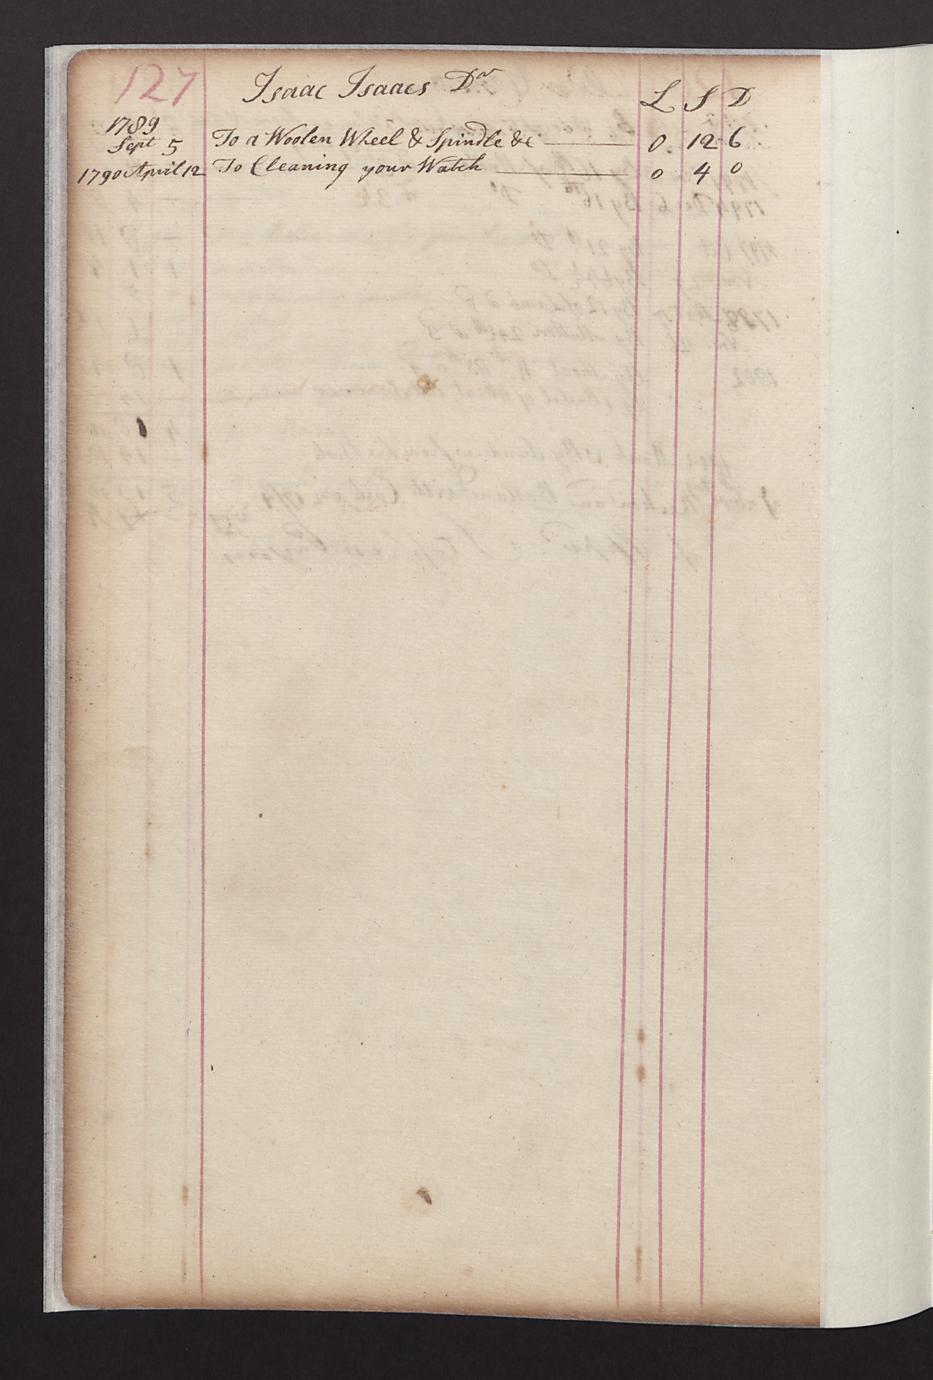 127 Isaac Isaacs Dr L S D
1789
Sept 5 To a Woolen Wheel & Spindle &c 0 12 6
1790 April 12 To Cleaning your Watch 0 4 0